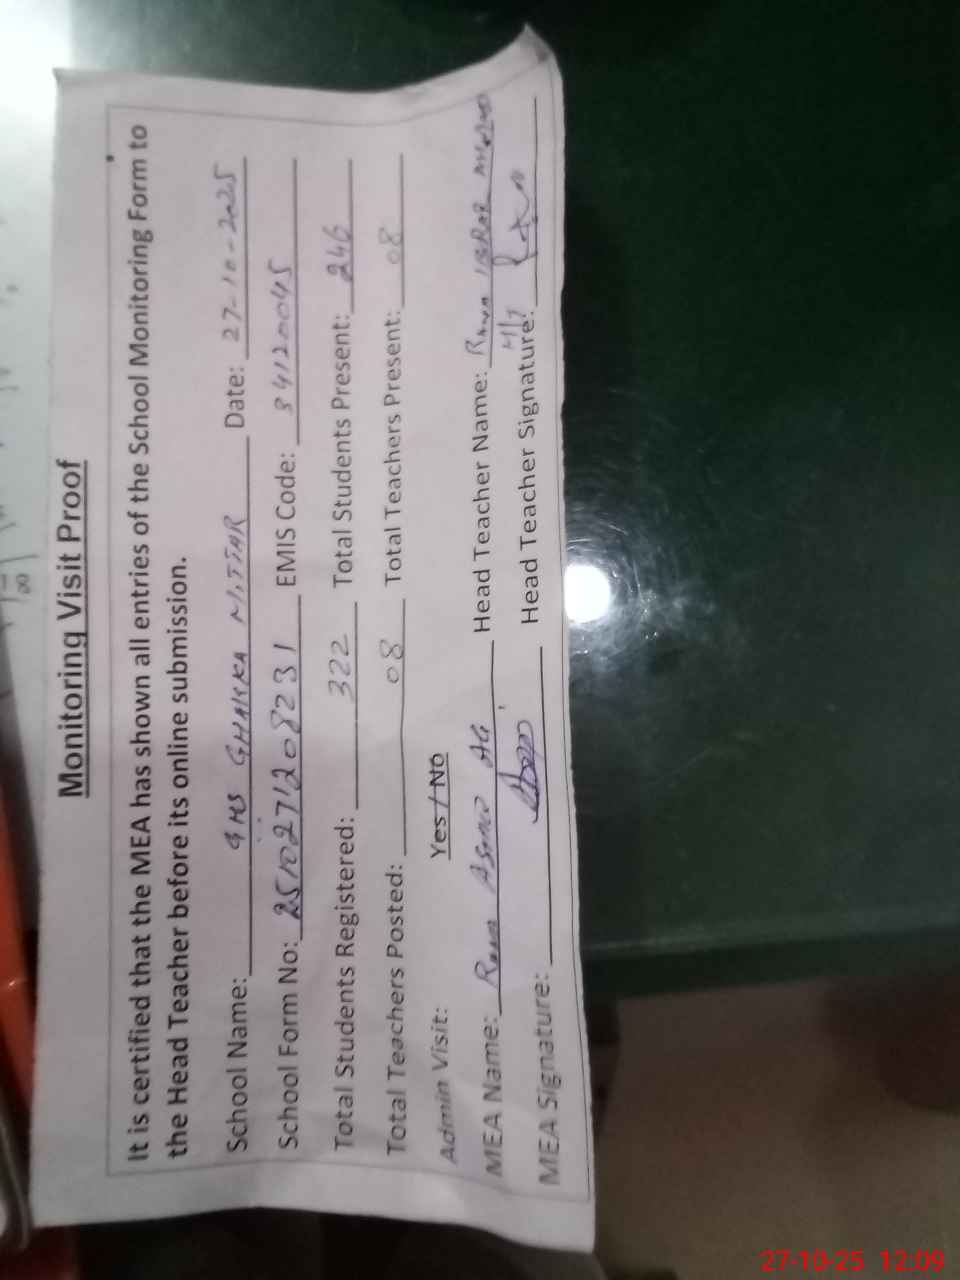 Monitoring Visit Proof
It is certified that the MEA has shown all entries of the School Monitoring Form to
the Head Teacher before its online submission.
School Name: GHS GHAKKA MITTAR Date: 27-10-2025
School Form No: 2510271208231 EMIS Code: 34120045
Total Students Registered: 322 Total Students Present: 246
Total Teachers Posted: 08 Total Teachers Present: 08
Admin Visit: Yes / No
MEA Name: Rana Head Teacher Name: Rana IBRAR
MEA Signature: Head Teacher Signature:
27-10-25 12:09